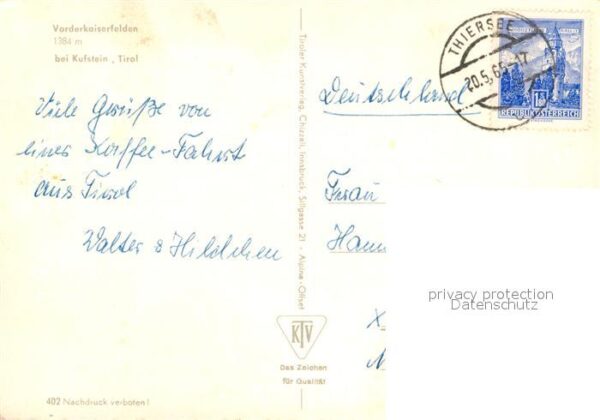 Vorderkaiserfelden
1384 m
bei Kufstein, Tirol
Viele Grüße von
einer Kaffee-Fahrt
aus Tirol
Walter & Hildchen
402 Nachdruck verboten!
Tiroler Kunstverlag Chizzali, Innsbruck, Sillgasse 21 - Alpina-Offset
KTV
Das Zeichen
für Qualität
THIERSEE
20.5.65-17
REPUBLIK ÖSTERREICH
Deutschland
Frau
Hann
privacy protection
Datenschutz